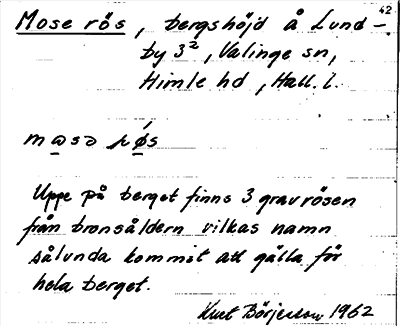 42
Mose rös, bergshöjd å Lund-
by 3², Valinge sn,
Himle hd, Hall. l.
Uppe på berget finns 3 gravrösen
från bronsåldern vilkas namn
sålunda kommit att gälla för
hela berget.
Kurt Börjesson 1962